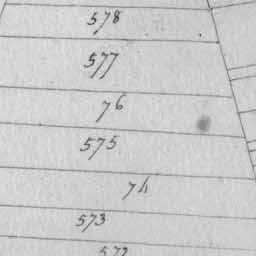 578
577
76
575
74
573
572